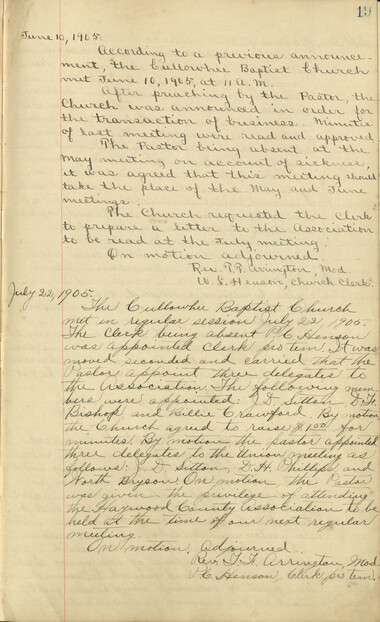 19
June 10, 1905.
According to a previous announce-
ment, the Cullowhee Baptist Church
met June 10, 1905, at 11 A.M.
After preaching by the Pastor, the
Church was announced in order for
the transaction of business. Minutes
of last meeting were read and approved
The Pastor being absent at the
May meeting on account of sickness,
it was agreed that this meeting should
take the place of the May and June
meetings.
The Church requested the Clerk
to prepare a letter to the Association
to be read at the July meeting.
On motion adjourned
Rev. Arrington, Mod.
W. S. Henson, Church Clerk.
July 22, 1905.
The Cullowhee Baptist Church
met in regular session July 22 1905.
The Clerk being absent P.C. Henson
was appointed Clerk pro tem. It was
moved seconded and carried that the
Pastor appoint three delegates to
the Association. The following mem
bers were appointed: J.D. Sitton, D.H.
Bishop and Lillie Crawford. By motion
the Church agreed to raise $1.00 for
minutes. By motion the pastor appointed
three delegates to the Union meeting as
follows: J. D. Sitton, D.H. Phillips and
North Bryson. On motion the Pastor
was given the privilege of attending
the Haywood County Association to be
held at the time of our next regular
meeting.
On motion. Adjourned.
Rev. Arrington, Mod.
P.C. Henson, Clerk pro tem.